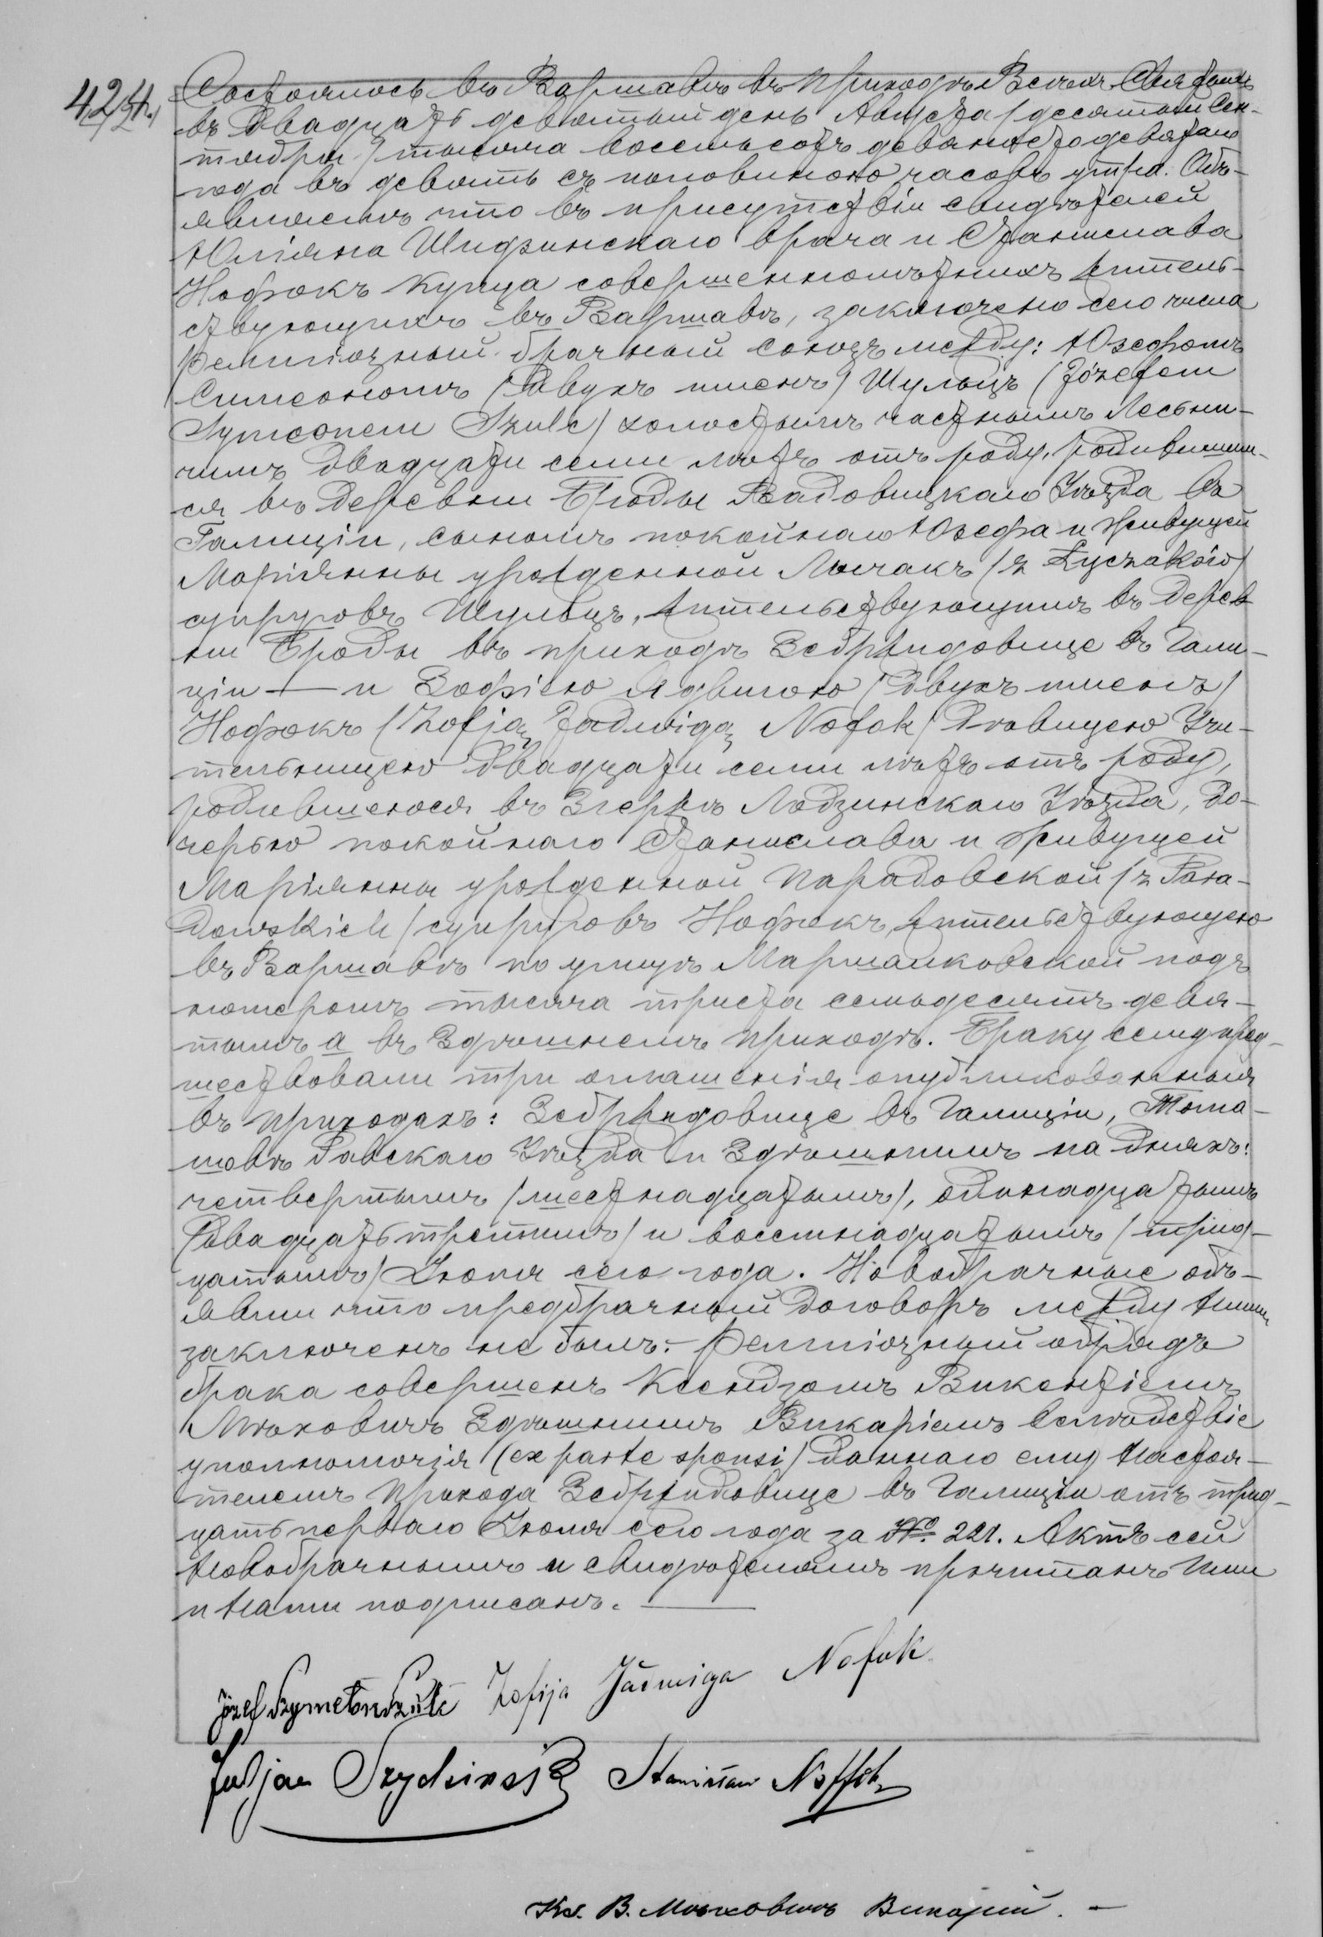 424.
Состоялось въ Варшавѣ въ приходѣ Всѣхъ Святыхъ
въ двадцать девятый день Августа / десятый Сен-
тября / тысяча восемьсотъ девяносто девятаго
года въ девять съ половиною часовъ утра. Объ-
являемъ что въ присутствіи свидѣтелей
Юліяна Шидзинскаго врача и Станислава
Нофокъ купца совершеннолѣтнихъ жител-
ствующихъ въ Варшавѣ, заключено сего числа
религіозный брачный союзъ между: Юзефомъ
Симеономъ (двухъ именъ) Шульцъ (Józefem
Symeonem Szulc) холостымъ частнымъ Лѣсни-
чимъ двадцати семи лѣтъ отъ роду, родившим-
ся въ деревни Броды Вадовицкаго Уѣзда въ
Галиціи, сыномъ покойнаго Юзефа и живущей
Маріянны урожденной Лычакъ (z Łyczaków)
супруговъ Шульцъ, жительствующимъ въ дерев
ни Броды въ приходѣ Зебржидовице въ Гали-
ціи — и Зофіею Ядвигою (двухъ именъ)
Нофокъ (Zofją Jadwigą Nofok) дѣвицею Учи-
тельницею двадцати семи лѣтъ отъ роду,
родившеюся въ Згержѣ Лодзинскаго Уѣзда, до-
черью покойнаго Станислава и живущей
Маріянны урожденной Парадовской (z Para-
dowskich) супруговъ Нофокъ, жительствующею
въ Варшавѣ по улицѣ Маршалковской подъ
номеромъ тысяча триста семьдесятъ девя-
тымъ а въ здѣшнемъ приходѣ. Браку сему пред-
шествовали три оглашенія опубликованныя
въ приходахъ: Зебржидовице въ Галиціи, Тома-
шовѣ Равскаго Уѣзда и Здѣшнимъ на дняхъ:
четвертымъ (шестнадцатымъ), одинадцатымъ
(двадцать третимъ) и восемнадцатымъ (трид-
цатымъ) Іюля сего года. Новобрачные объ-
явили что предбрачный договоръ между ними
заключенъ не былъ.- Религіозный обрядъ
брака совершенъ Ксендзомъ Викентіемъ
Мѣховичъ Здѣшнимъ Викаріемъ вслѣдствіе
уполномочія (ex parte sponsi) даннаго ему Настоя-
телемъ прихода Зебржидовице въ Галиціи отъ трид-
цать перваго Іюля сего года за №. 221. Актъ сей
Новобрачнымъ и свидѣтелямъ прочитанъ ими
и нами подписанъ. —
Józef Szymeon Szulc Zofija Jadwiga Nofok
Juljan Szydzinski Stanisław Noffok
Кс. В. Мѣховичъ Викарій. —